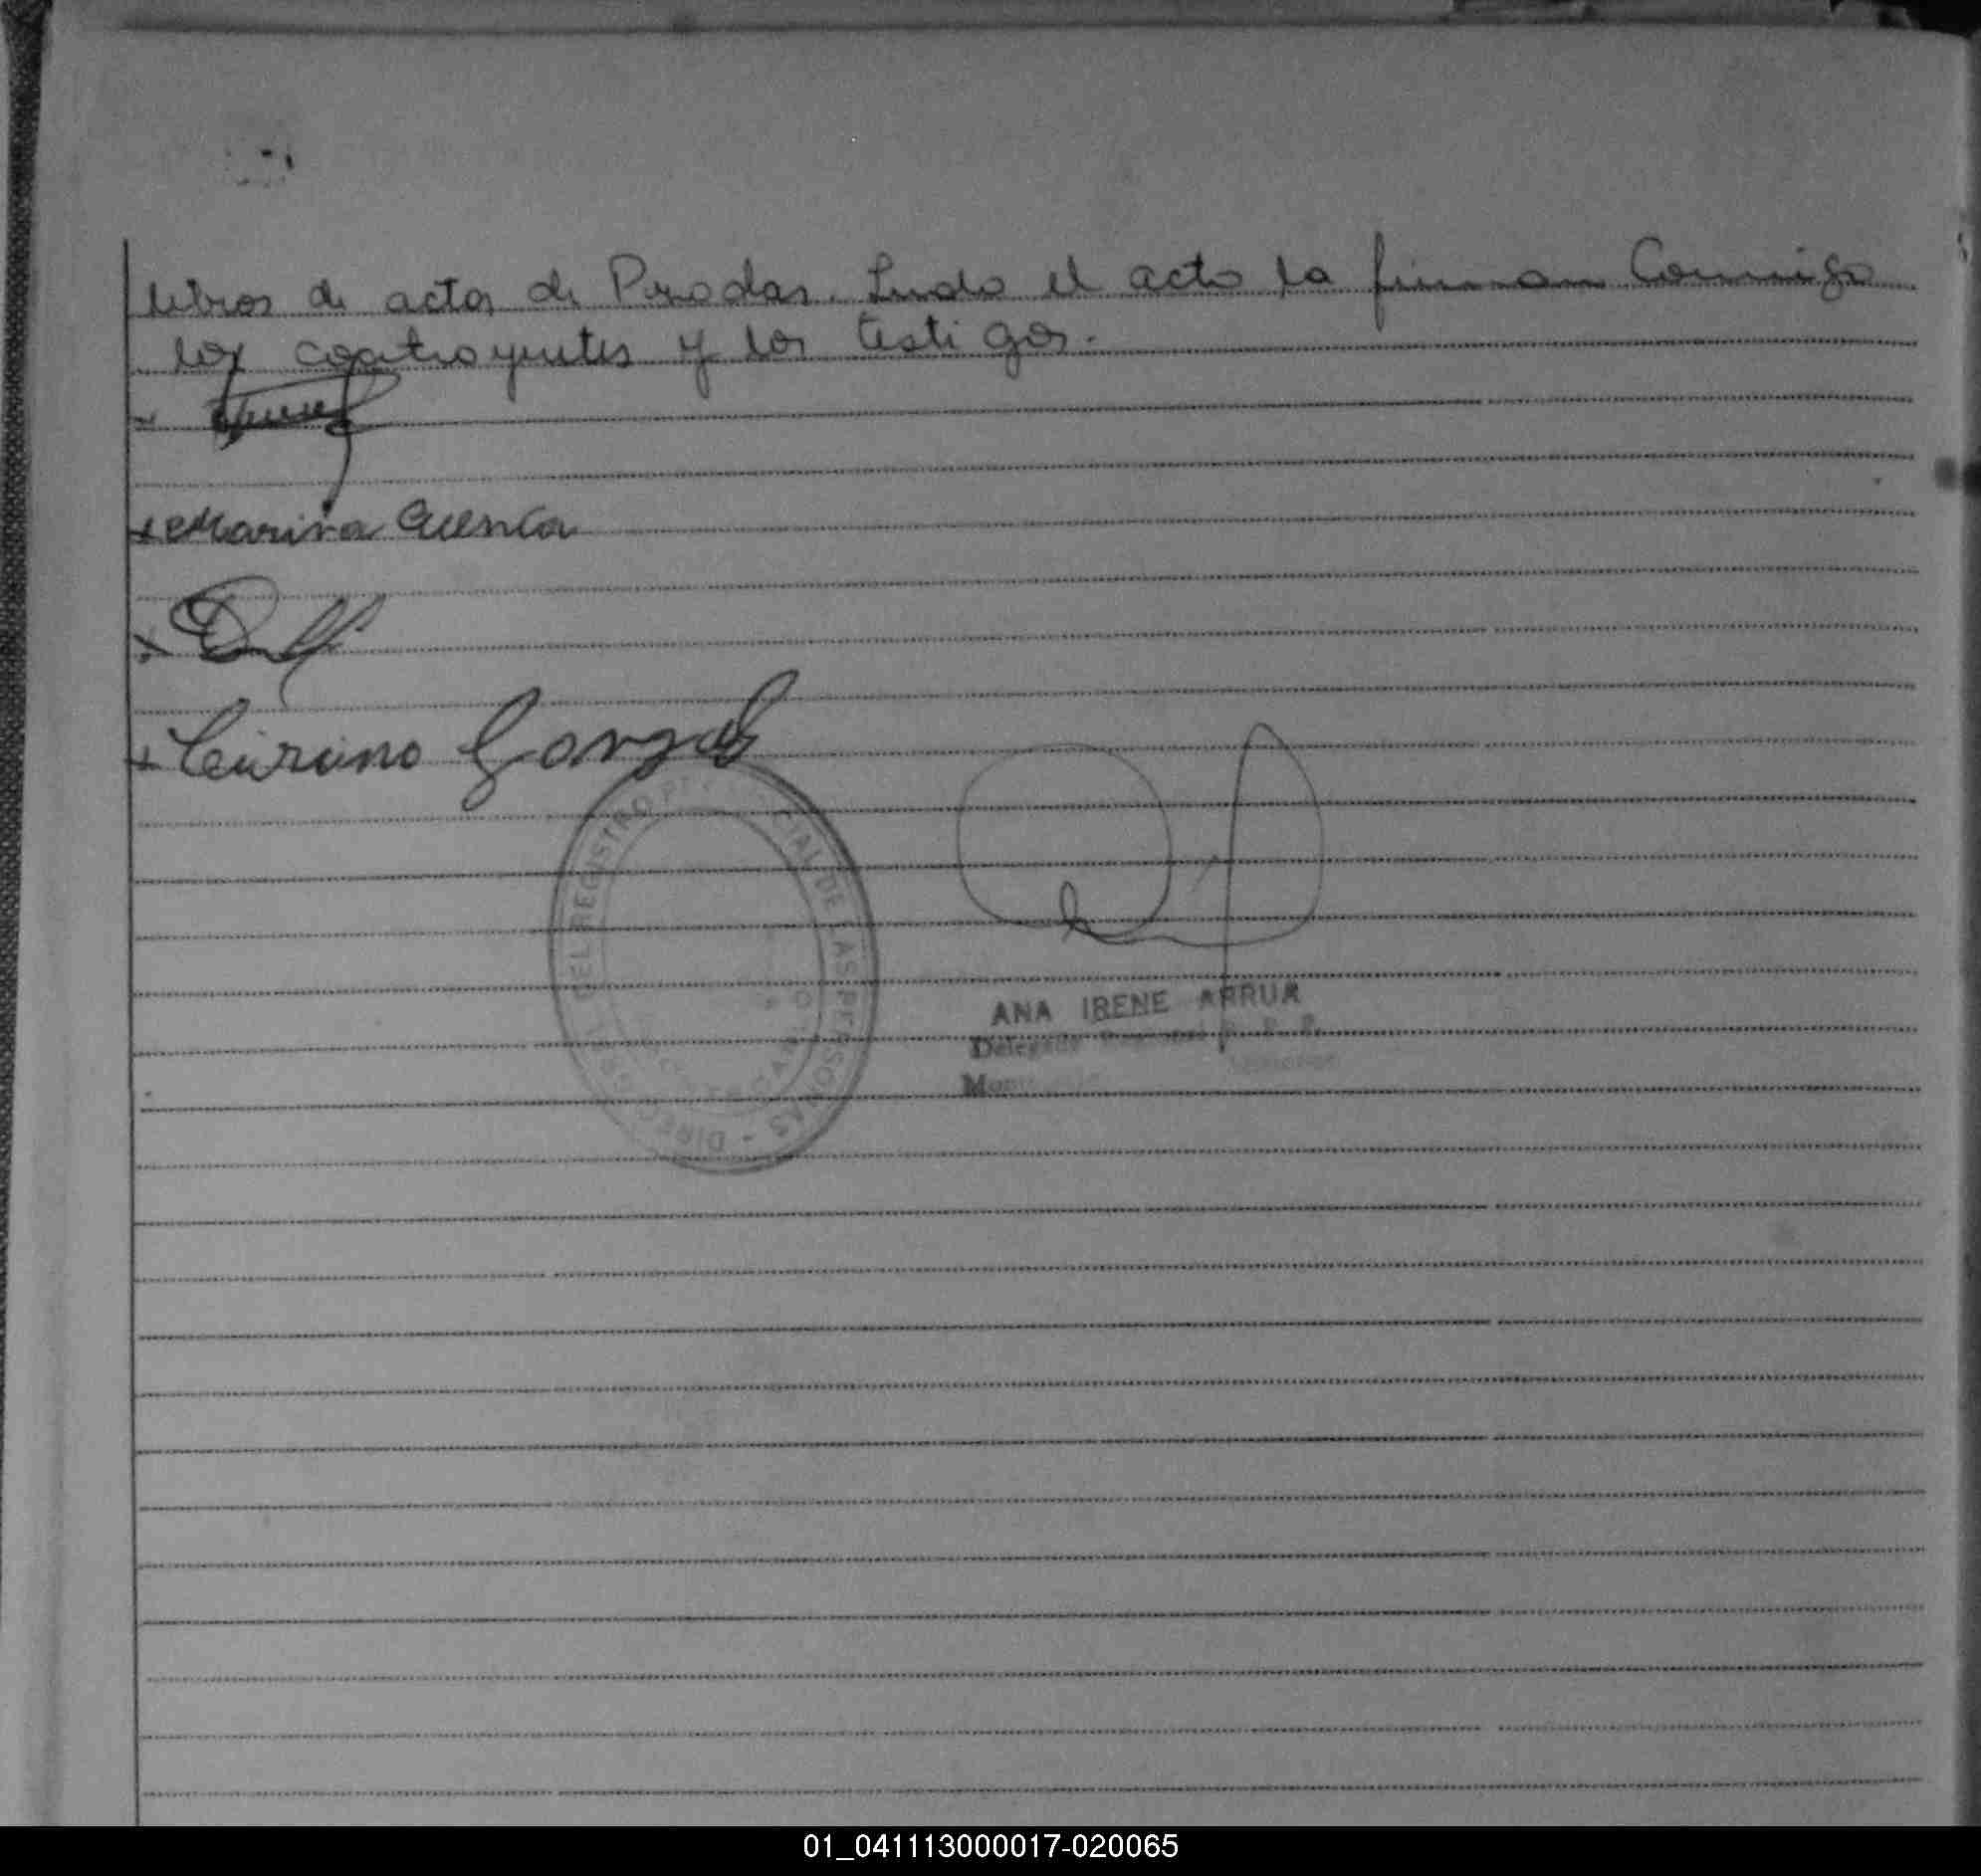 libros de actas de Posadas. Leida el acta la firman Conmigo
los contrayentes y los testigos.-
Marina Cuenca
Cirino Gonzalez
DEL REGISTRO PROVINCIAL DE LAS PERSONAS - DIRECCION GRAL
ANA IRENE ARRUA
Delegada
01_041113000017-020065